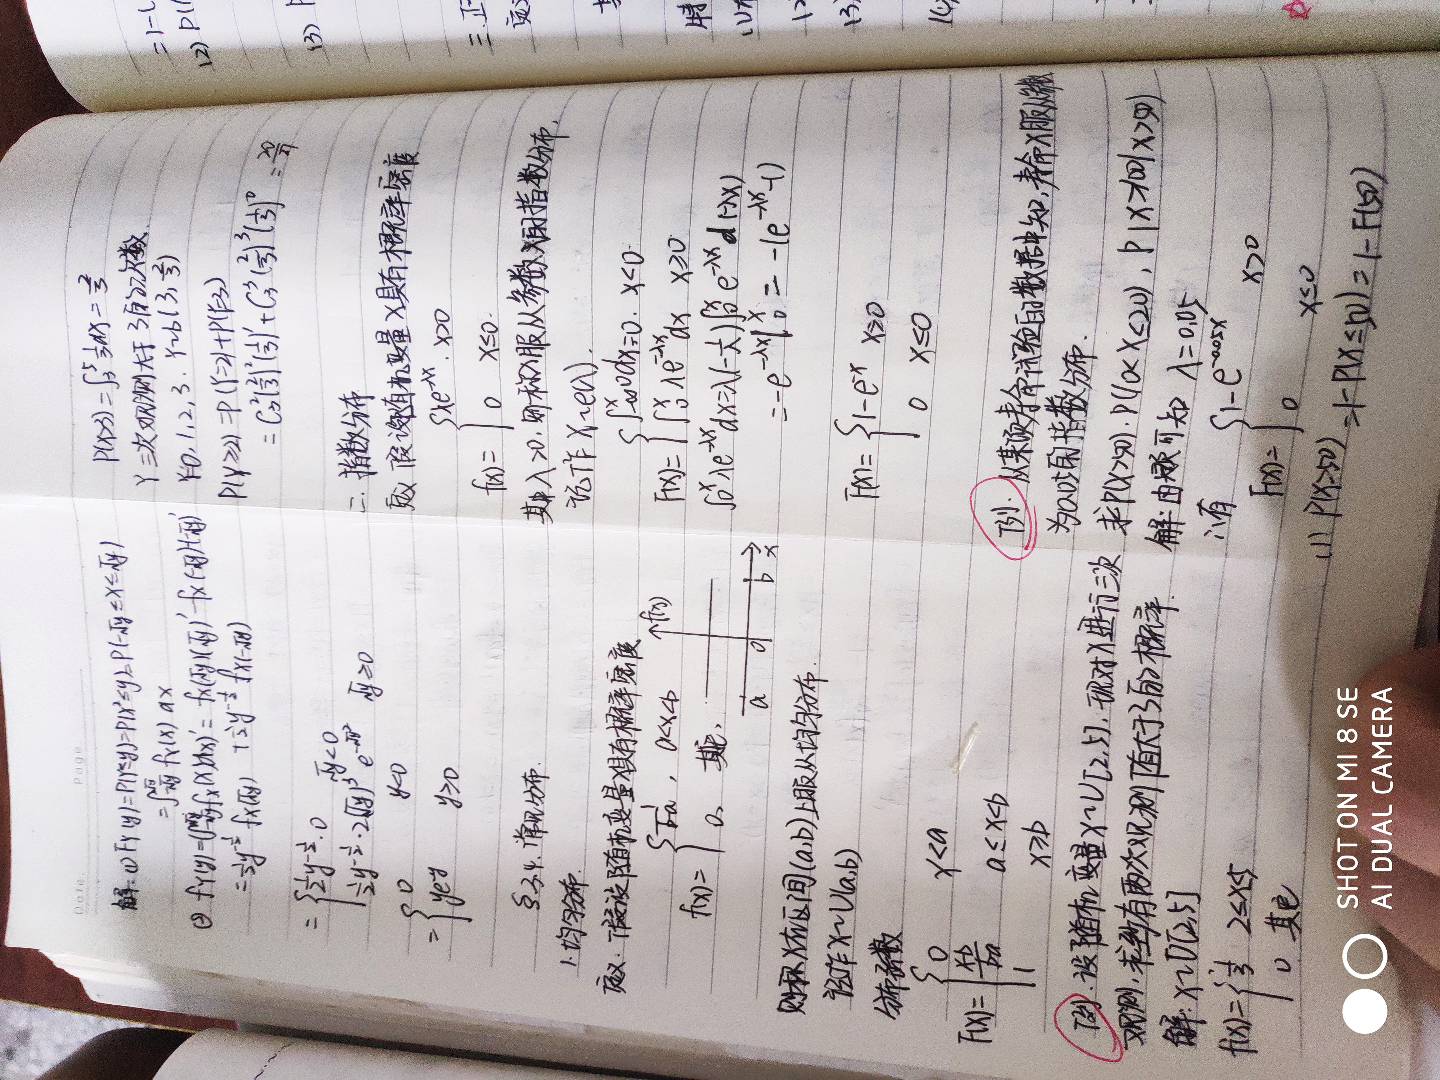 Date. Page
解：(1) FY(y)=P(Y≤y)=P(X²≤y)=P(-√y≤X≤√y)
=∫_{-√y}^{√y} fX(x) dx
(2) fY(y)=(∫_{-√y}^{√y} fX(x)dx)'= fX(√y)(√y)'-fX(-√y)(-√y)'
=½y^{-½} fX(√y) +½y^{-½} fX(-√y)
= { ½y^{-½}·0 √y<0
½y^{-½}·2(√y)³ e^{-√y²} √y≥0
= { 0 y<0
ye^{-y} y≥0
§3.4. 常见分布.
1.均匀分布.
定义. 假设随机变量X具有概率密度
f(x)= { 1/(b-a), a<x<b
0, 其它,
f(x)
a 0 b x
则称X在区间(a,b)上服从均匀分布.
记作X~U(a,b)
分布函数
F(x)= { 0 x<a
(x-b)/(b-a) a≤x<b
1 x≥b
例. 设随机变量X~U[2,5], 现对X进行三次
观测, 求至少有两次观测值大于3的概率.
解: X~U[2,5]
f(x)= { 1/3 2≤x≤5
0 其它
P(X>3)=∫_3^5 1/3 dx=2/3
Y三次观测大于3的次数.
Y=0,1,2,3. Y~b(3,2/3)
P(Y≥2)=P(Y=2)+P(Y=3)
=C_3^2(2/3)^2(1/3)^1+C_3^3(2/3)^3(1/3)^0=20/27
二. 指数分布
定义 假设随机变量X具有概率密度
f(x)= { λe^{-λx}. x>0
0 x≤0.
其中λ>0, 则称X服从参数λ的指数分布,
记作 X~e(λ).
F(x)= { ∫_{-∞}^x 0dx=0. x<0.
∫_0^x λe^{-λx}dx x≥0
∫_0^x λe^{-λx}dx=λ(-1/λ)∫_0^x e^{-λx}d(-λx)
=-e^{-λx}|_0^x = -(e^{-λx}-1)
F(x)= { 1-e^{-x} x≥0
0 x≤0
例. 从某项寿命试验的数据中知, 寿命X服从参数
为0.05的指数分布.
求P(X>50). P(10<X≤20), P(X>100|X>50)
解: 由题可知 λ=0.05
∴有
F(x)= { 1-e^{-0.05x} x>0
0 x≤0
(1) P(X>50) =1-P(X≤50)=1-F(50)
=1-
(2) P(
(3)
三. 正
定义
其
特
(2
(3)
SHOT ON MI 8 SE
AI DUAL CAMERA